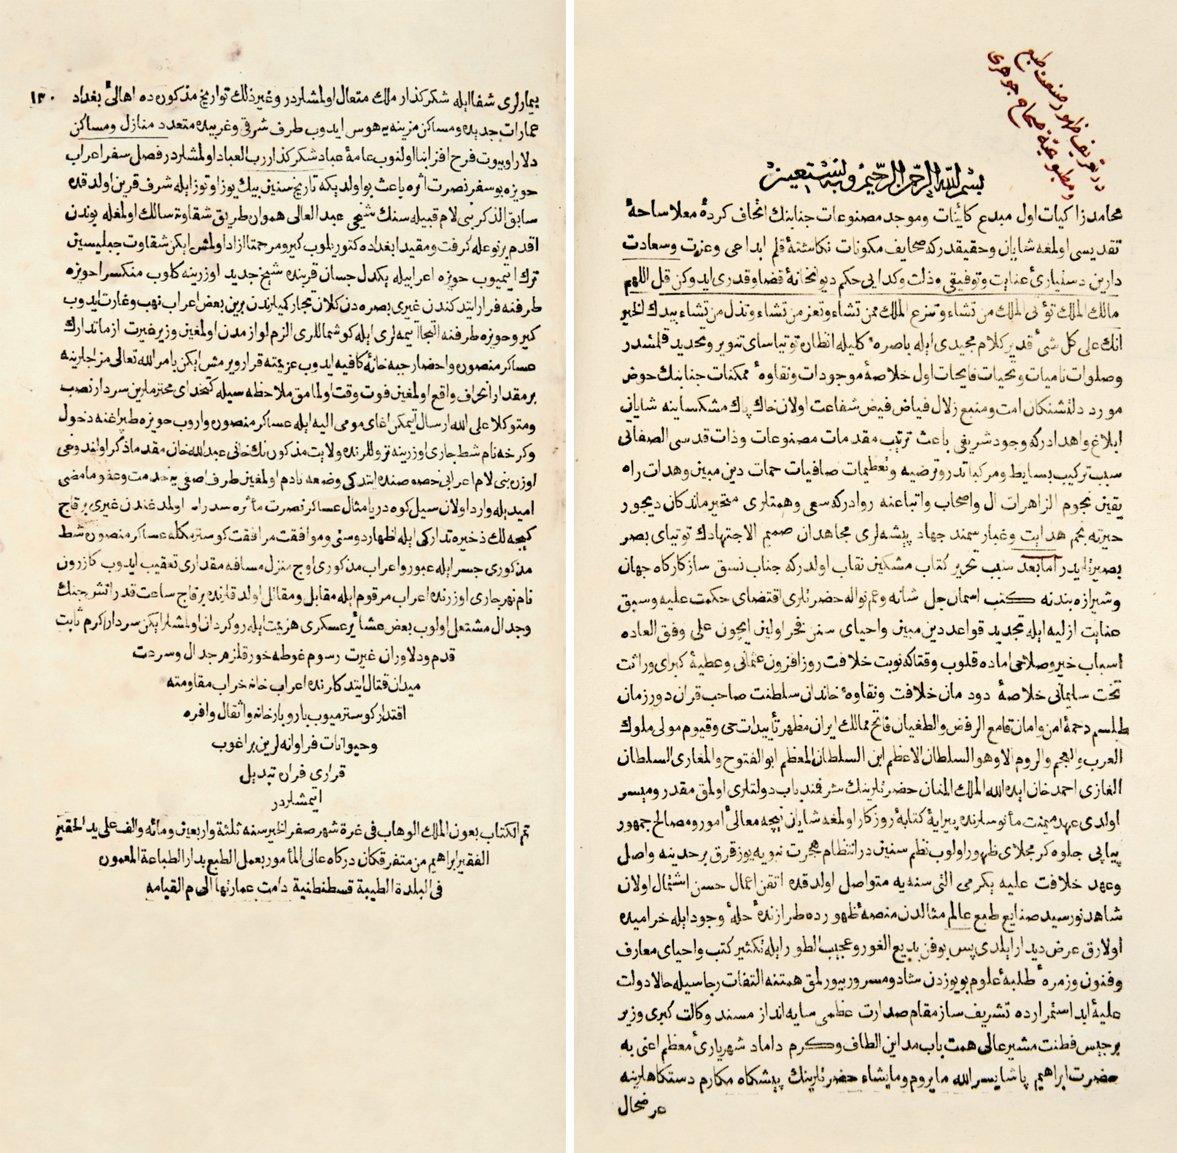 در تعریف ظهور صنعت طبع
و مطبوعیّة صحاح جوهری
بسم الله الرحمن الرحیم وبه نستعین
محامد زاکیات اول مبدع کائنات وموجد مصنوعات جنابنك اتحاف کردهٔ معلا ساحهٔ
تقدیسی اولمغه شایان وحقیقدر که صحایف مکونات نکاشتهٔ قلم ابداعی وعزت وسعادت
دارین دستیاریٔ عنایت وتوفیقی وذلت وکدایی حکم دیوانخانهٔ قضا وقدری ایدوکن قل اللهم
مالك الملك تؤتی الملك من تشاء وتنزع الملك ممن تشاء وتعز من تشاء وتذل من تشاء بیدك الخیر
انك علی کل شیٔ قدیر کلام مجیدی ایله باصرهٔ کلیله انظار توتیاسای تنویر وتحدید قلمشدر
وصلوات نامیات وتحیات فایحات اول خلاصهٔ موجودات ونقاوهٔ ممکنات جنابنك حوض
مورد دلتشنکان امت ومنبع زلال فیاض فیض شفاعت اولان خاك پاك مشکساینه شایان
ابلاغ واهدادر که وجود شریفی باعث ترتیب مقدمات مصنوعات وذات قدسی الصفاتی
سبب ترکیب بسایط ومرکباتدر وترضیه وتعظیمات صافیات حمات دین مبین وهدات راه
یقین نجوم الزاهرات ال واصحاب واتباعنه روادر که سعی وهمتلری متحیر ماندکان دیجور
حیرته نجم هدایت وغبار سمند جهاد پیشه‌لری مجاهدان صمیم الاجتهادك توتیای بصر
بصیرتلریدر اما بعد سبب تحریر کتاب مشکین نقاب اولدر که جناب نسق ساز کارکاه جهان
وشیرازه بندنه کتب اسمان جل شانه وعم نواله حضرتلری اقتضای حکمت علیه وسبق
عنایت ازلیه ایله تجدید قواعد دین مبین واحیای سنن فخر اولین ایچون علی وفق العاده
اسباب خیر وصلاحی اماده قلوب وقتاکه نوبت خلافت روز افزون عثمانی وعطیهٔ کبرای وراثت
تخت سلیمانی خلاصهٔ دودمان خلافت ونقاوهٔ خاندان سلطنت صاحب قران دور زمان
طلسم دخمهٔ امن وامان قامع الرفض والطغیان فاتح ممالك ایران مظهر تأییدات حی وقیوم مولی ملوك
العرب والعجم والروم الا وهو السلطان الاعظم ابن السلطان المعظم ابو الفتوح والمغازی السلطان
الغازی احمد خان ایده الله الملك المنان حضرتلرینك شرفیاب دولتلری اولمق مقدر ومیسر
اولدی عهد میمنت مأنوسلرنده پیرایهٔ کتابهٔ روزکار اولمغه شایان نیچه معالیٔ امور ومصالح جمهور
پیاپی جلوه کر مجلای ظهور اولوب نظم سنین در انتظام هجرت نبویه یوز قرق برحدینه واصل
وعهد خلافت علیه یکرمی التی سنه‌یه متواصل اولدقده اتفن اعمال حسن اشتمال اولان
شاهد نورسید صنایع طبع عالم مثالدن منصهٔ ظهورده طرازندهٔ حلهٔ وجود ایله خرامیده
اولارق عرض دیدار ایلدی پس بو فن بدیع الغور وعجیب الطور ایله تکثیر کتب واحیای معارف
وفنون وزمرهٔ طلبهٔ علوم بو یوزدن شاد ومسرور بیورلمق همتنه التفات رجاسیله حالا دولت
علیهٔ ابد استمرارده تشریف ساز مقام صدارت عظمی سایه انداز مسند وکالت کبری وزیر
برجیس فطنت مشیر عالی همت باب مداین الطاف وکرم داماد شهریاریٔ معظم اعنی به
حضرت ابراهیم پاشا یسر الله ما یروم وما یشاء حضرتلرینك پیشکاه مکارم دستکاهلرینه
عرضحال
١٣٠
بیمارلری شفا ایله شکر کذار ملك متعال اولمشلردر وغیر ذلك تواریخ مذکورده اهالیٔ بغداد
عمارات جدیده ومساکن مزینه‌یه هوس ایدوب طرف شرقی وغربیده متعدد منازل ومساکن
دلارا وبیوت فرح افزا بنا اولنوب عامهٔ عباد شکر کذار رب العباد اولمشلردر فصل سفر اعراب
حویزه بو سفر نصرت اثره باعث بو اولدیکه تاریخ سنین بیك یوز اوتوز ایله شرف قرین اولدقده
سابق الذکر بنی لام قبیله سنك شیخی عبد العالی هموان طریق شقاوته سالك اولمغله بوندن
اقدم بر نوعله کرفت ومقید ابغداده کتوریلوب کیرو مرحمتا ازاد اولمش ایکن شقاوت جبلیسین
ترك ایتمیوب حویزه اعرابیله یکدل جسان قربنده شیخ جدید اوزرینه کلوب منکسرا حویزه
طرفنه فرار ایتدکندن غیری بصره‌دن کلان تجار کمیلرندن برین بعض اعراب نهب وغارت ایدوب
کیرو حویزه طرفنه التجا ایتمه‌لری ایله کوشماللری الزم لوازمدن اولمغین وزیر غیرت ازما تدارك
عساکر منصوره واحضار جبه خانهٔ کافیه ایدوب عزیمته قرار ویرمش ایکن بامر الله تعالی مزاجلرینه
بر مقدار انحراف واقع اولمغین فوت وقت اولمامق ملاحظه سیله کتخدای محترملرین سردار نصب
ومتوکلا علی الله ارسال ایتمکن اغای مومی الیه ایله عساکر منصوره واروب حویزه طپراغنه دخول
وکرخه نام شط جاری اوزرینه نزوللرنده ولایت مذکوره‌نك خانی عبد الله خان مقدما ذکر اولندوغی
اوزره بنی لام اعرابی خصوصنده ایتدکی وضعه نادم اولمغین طرف اصفی‌یه خدمت وعفو ما مضی
امیدیله وارد اولان سیل کوه دریا مثال عساکر نصرت مأثره سد راه اولمدغندن غیری بر قاج
کیجه‌لك ذخیره تدارکی ایله اظهار دوستی وموافقت مرافقت کوسترمکله عساکر منصوره شط
مذکوری جسر ایله عبور واعراب مذکوری اوچ منزل مسافه مقداری تعقیب ایدوب کازرون
نام نهر جاری اوزرنده اعراب مرقوم ایله مقابل ومقاتل اولدقلرنده بر قاج ساعت قدر اتش جنك
وجدال مشتعل اولوب بعض عشائر عسکری هزیمت ایله روکردان اولمشلر ایکن سردار اکرم ثابت
قدم ودلاوران غیرت رسوم غوطه خور قلزم جدال وسردت
میدان قتال ایتدکلرنده اعراب خانه خراب مقاومته
اقتدار کوسترمیوب بار وبارخانه واثقال وافره
وحیوانات فراوانه‌لرین براغوب
قراری فراره تبدیل
ایتمشلردر
تم الکتاب بعون الملك الوهاب فی غرة شهر صفر الخیر سنه ثلثة واربعین ومائه والف علی ید الحقیر
الفقیر ابراهیم من متفرقکان درکاه عالی المأمور بعمل الطبع بدار الطباعة المعموره
فی البلدة الطیبة قسطنطنیة دامت عمارتها الی یوم القیامه